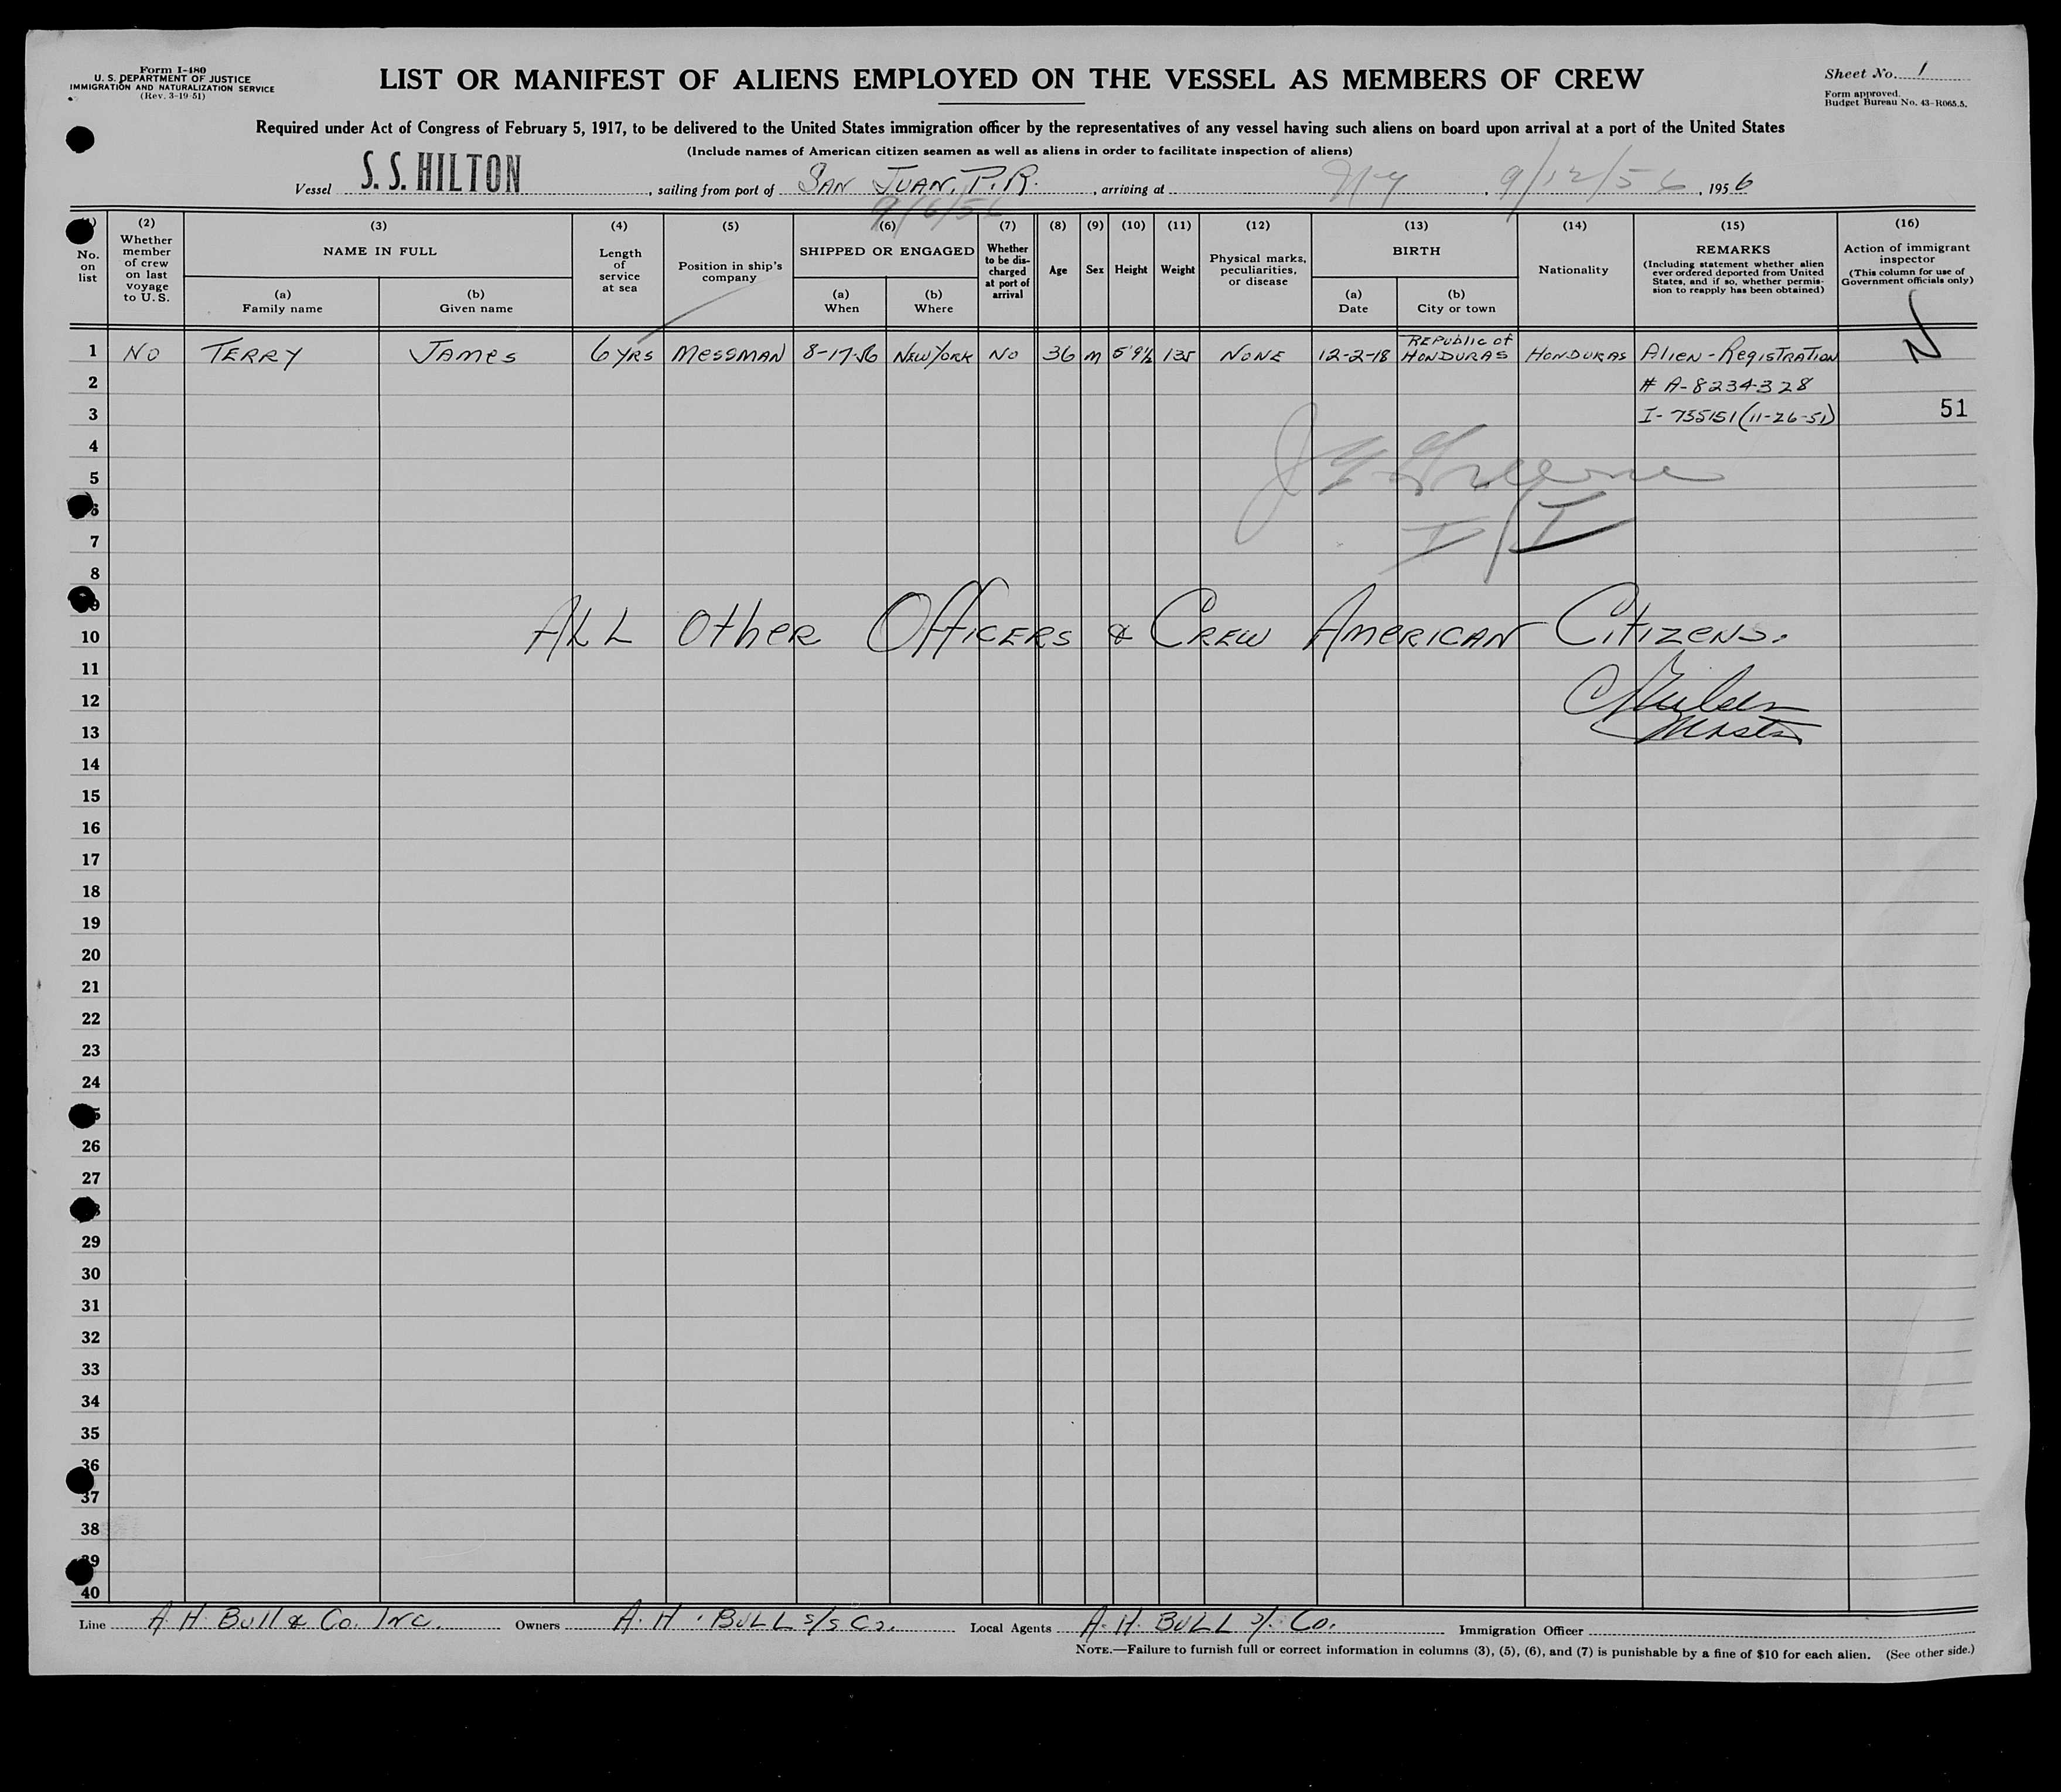 Form I-480
U. S. DEPARTMENT OF JUSTICE
IMMIGRATION AND NATURALIZATION SERVICE
(Rev. 3-19-51)
LIST OR MANIFEST OF ALIENS EMPLOYED ON THE VESSEL AS MEMBERS OF CREW
Sheet No. 1
Form approved.
Budget Bureau No. 43-R065.5.
Required under Act of Congress of February 5, 1917, to be delivered to the United States immigration officer by the representatives of any vessel having such aliens on board upon arrival at a port of the United States
(Include names of American citizen seamen as well as aliens in order to facilitate inspection of aliens)
Vessel S. S. HILTON, sailing from port of SAN JUAN, P.R., arriving at NY 9/12/56, 1956
9/6/56
(1) No. on list
(2) Whether member of crew on last voyage to U. S.
(3) NAME IN FULL
(a) Family name
(b) Given name
(4) Length of service at sea
(5) Position in ship's company
(6) SHIPPED OR ENGAGED
(a) When
(b) Where
(7) Whether to be discharged at port of arrival
(8) Age
(9) Sex
(10) Height
(11) Weight
(12) Physical marks, peculiarities, or disease
(13) BIRTH
(a) Date
(b) City or town
(14) Nationality
(15) REMARKS
(Including statement whether alien ever ordered deported from United States, and if so, whether permission to reapply has been obtained)
(16) Action of immigrant inspector
(This column for use of Government officials only)
1 NO TERRY JAMES 6 YRS MESSMAN 8-17-56 NEW YORK NO 36 M 5'9½ 135 NONE 12-2-18 REPUBLIC OF HONDURAS HONDURAS ALIEN-REGISTRATION
2 # A-8234328
3 I-735151 (11-26-51) 51
4
5
6
7
I/I
8
9
10 ALL OTHER OFFICERS & CREW AMERICAN CITIZENS.
11
12
13 MASTER
14
15
16
17
18
19
20
21
22
23
24
25
26
27
28
29
30
31
32
33
34
35
36
37
38
39
40
Line A. H. BULL & CO. INC. Owners A. H. BULL S/S CO. Local Agents A. H. BULL S/S CO. Immigration Officer
NOTE.—Failure to furnish full or correct information in columns (3), (5), (6), and (7) is punishable by a fine of $10 for each alien. (See other side.)